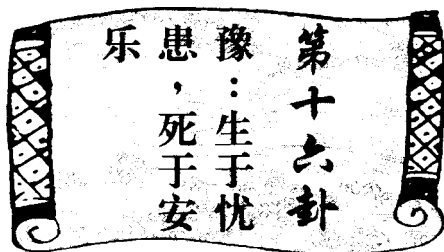 第十六卦
豫：生于忧
患，死于安
乐